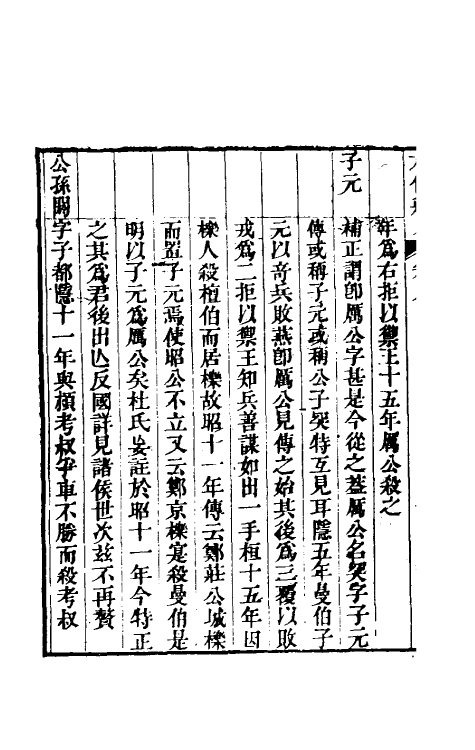 年爲右拒以禦王十五年厲公殺之
子元　補正謂卽厲公字甚是今從之蓋厲公名突字子元
傳或稱子元或稱公子突特互見耳隱五年曼伯子
元以奇兵敗燕卽厲公見傳之始其後爲三覆以敗
戎爲二拒以禦王知兵善謀如出一手桓十五年因
櫟人殺檀伯而居櫟故昭十一年傳云鄭莊公城櫟
而置子元焉使昭公不立又云鄭京櫟寔殺曼伯是
明以子元爲厲公矣杜氏妄註於昭十一年今特正
之其爲君後出亾反國詳見諸侯世次兹不再贅
公孫閼　字子都隱十一年與頴考叔爭車不勝而殺考叔